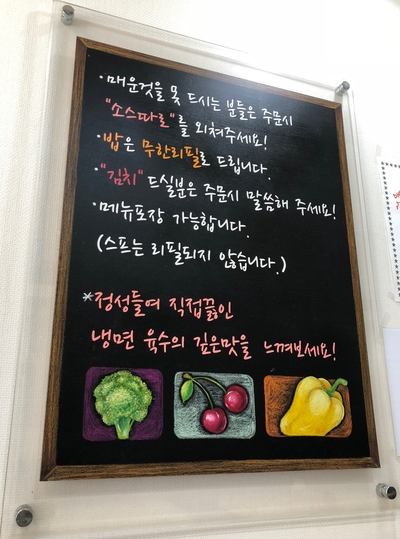 ·매운것을 못 드시는 분들은 주문시
"소스따로"를 외쳐주세요!
·밥은 무한리필로 드립니다.
·"김치" 드실분은 주문시 말씀해 주세요!
·메뉴포장 가능합니다.
(스프는 리필되지 않습니다.)
*정성들여 직접끓인
냉면 육수의 깊은맛을 느껴보세요!